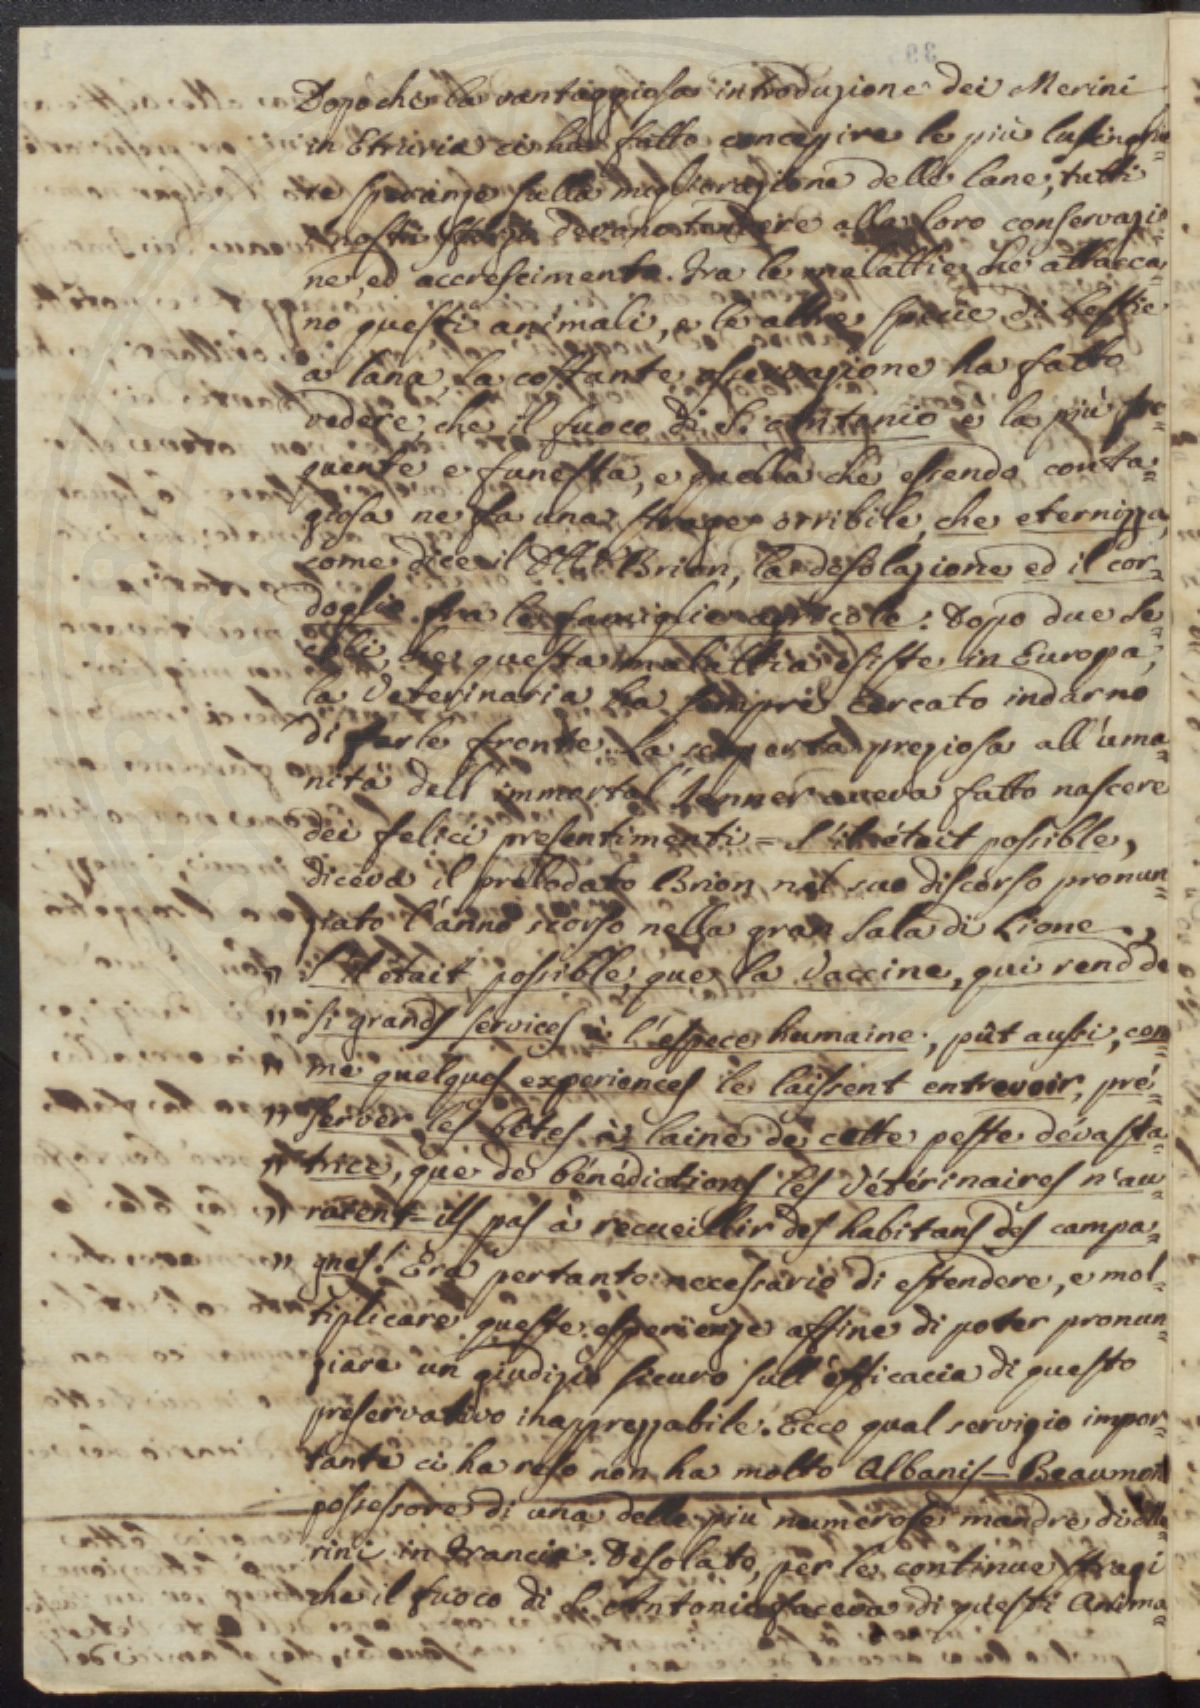 Dopo che la vantaggiosa introduzione dei Merini
in Etruria ci ha fatto concepire le più lusinghie=
re speranze sulla migliorazione delle lane, tutti
i nostri sforzi devono tendere alla loro conservazio
ne, ed accrescimento. Fra le malattie che attacca=
no questi animali, e le altre specie di bestie
a lana, la costante osservazione ha fatto
vedere, che il fuoco di S. Antonio e la più fre=
quente e funesta, e quella che essendo conta=
giosa ne fa una strage orribile, che eternizza,
come dice il Dott. Brion, la desolazione ed il cor=
doglio fra le famiglie agricole: Dopo due se=
coli, che questa malattia esiste in Europa,
la Veterinaria ha sempre cercato indarno
di farle fronte. La scoperta preziosa all'uma=
nità dell'immortal Jenner aveva fatto nascere
dei felici presentimenti = S'il était possible,
diceva il prelodato Brion nel suo discorso pronun=
ziato l'anno scorso nella gran sala di Lione,
" S'il était possible, que la Vaccine, qui rend de
" si grands services à l'espece humaine, pût aussi, com=
" me quelques experiences le laissent entrevoir, pré=
" server les bêtes à laine de cette peste dévasta=
" trice, que de bénédictions les Vétérinaires n'au=
" raient=ills pas à recueillir des habitans des campa=
" gnes! Era pertanto necessario di estendere, e mol=
tiplicare queste esperienze affine di poter pronun=
ziare un giudizio sicuro sull'efficacia di questo
preservativo inapprezzabile. Ecco qual servigio impor=
tante ci ha reso non ha molto Albanis=Beaumont
possessore di una delle più numerose mandre di Me
rini in Francia. Desolato, per le continue stragi
che il fuoco di S. Antonio faceva di questi Anima=